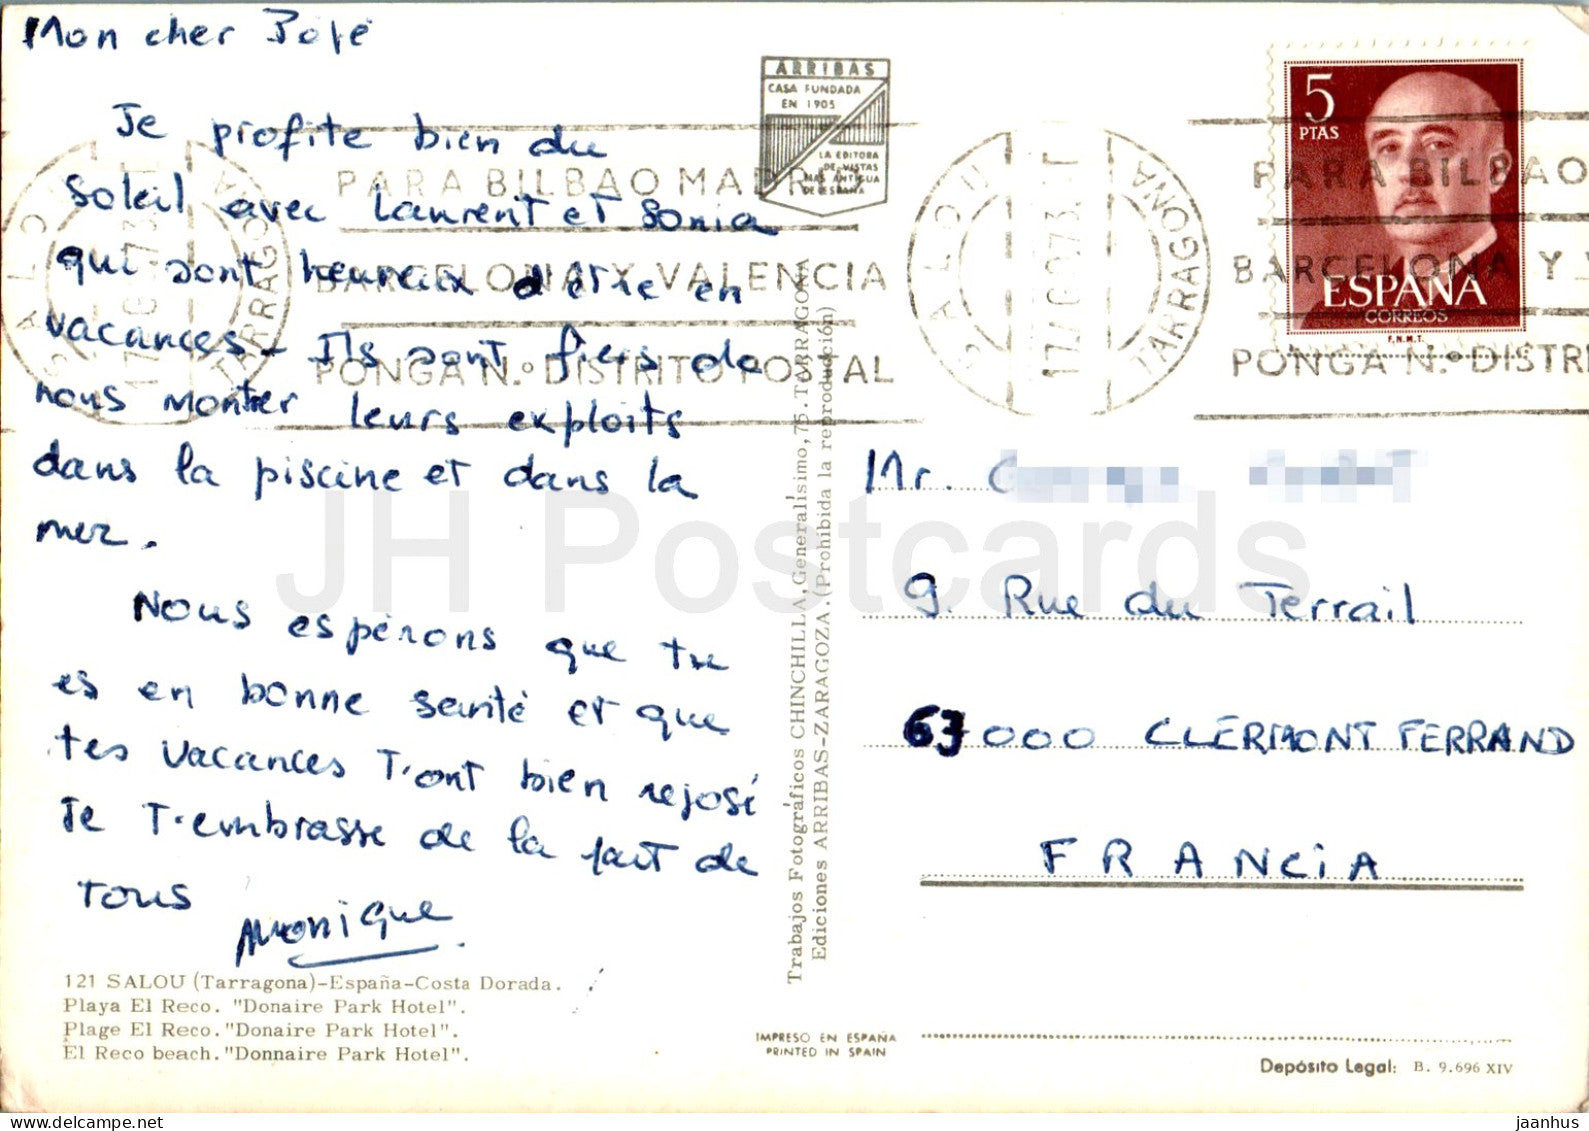 Mon cher
Je profite bien du
soleil avec Laurent et Sonia
qui sont heureux d'être en
vacances - Ils sont fiers de
nous montrer leurs exploits
dans la piscine et dans la
mer.
Nous espérons que tu
es en bonne santé et que
tes vacances t'ont bien rejosé
Je t'embrasse de la part de
tous
Monique
121 SALOU (Tarragona)-España-Costa Dorada.
Playa El Reco. "Donaire Park Hotel".
Plage El Reco. "Donaire Park Hotel".
El Reco beach. "Donnaire Park Hotel".
ARRIBAS
CASA FUNDADA
EN 1905
LA EDITORA
DE VISTAS
MAS ANTIGUA
DE ESPAÑA
PARA BILBAO MADRI
BARCELONA Y VALENCIA
PONGA N.º DISTRITO POSTAL
TARRAGONA
Trabajos Fotográficos CHINCHILLA, Generalísimo, 75. TARRAGONA
Ediciones ARRIBAS-ZARAGOZA. (Prohibida la reproducción)
IMPRESO EN ESPAÑA
PRINTED IN SPAIN
TARRAGONA
5
PTAS
ESPAÑA
CORREOS
F.N.M.T.
PARA BILBAO
BARCELONA Y
PONGA N.º DISTRI
Mr.
9. Rue du Terrail
63000 CLERMONT FERRAND
FRANCIA
Depósito Legal: B. 9.696 XIV
JH Postcards
jaanhus